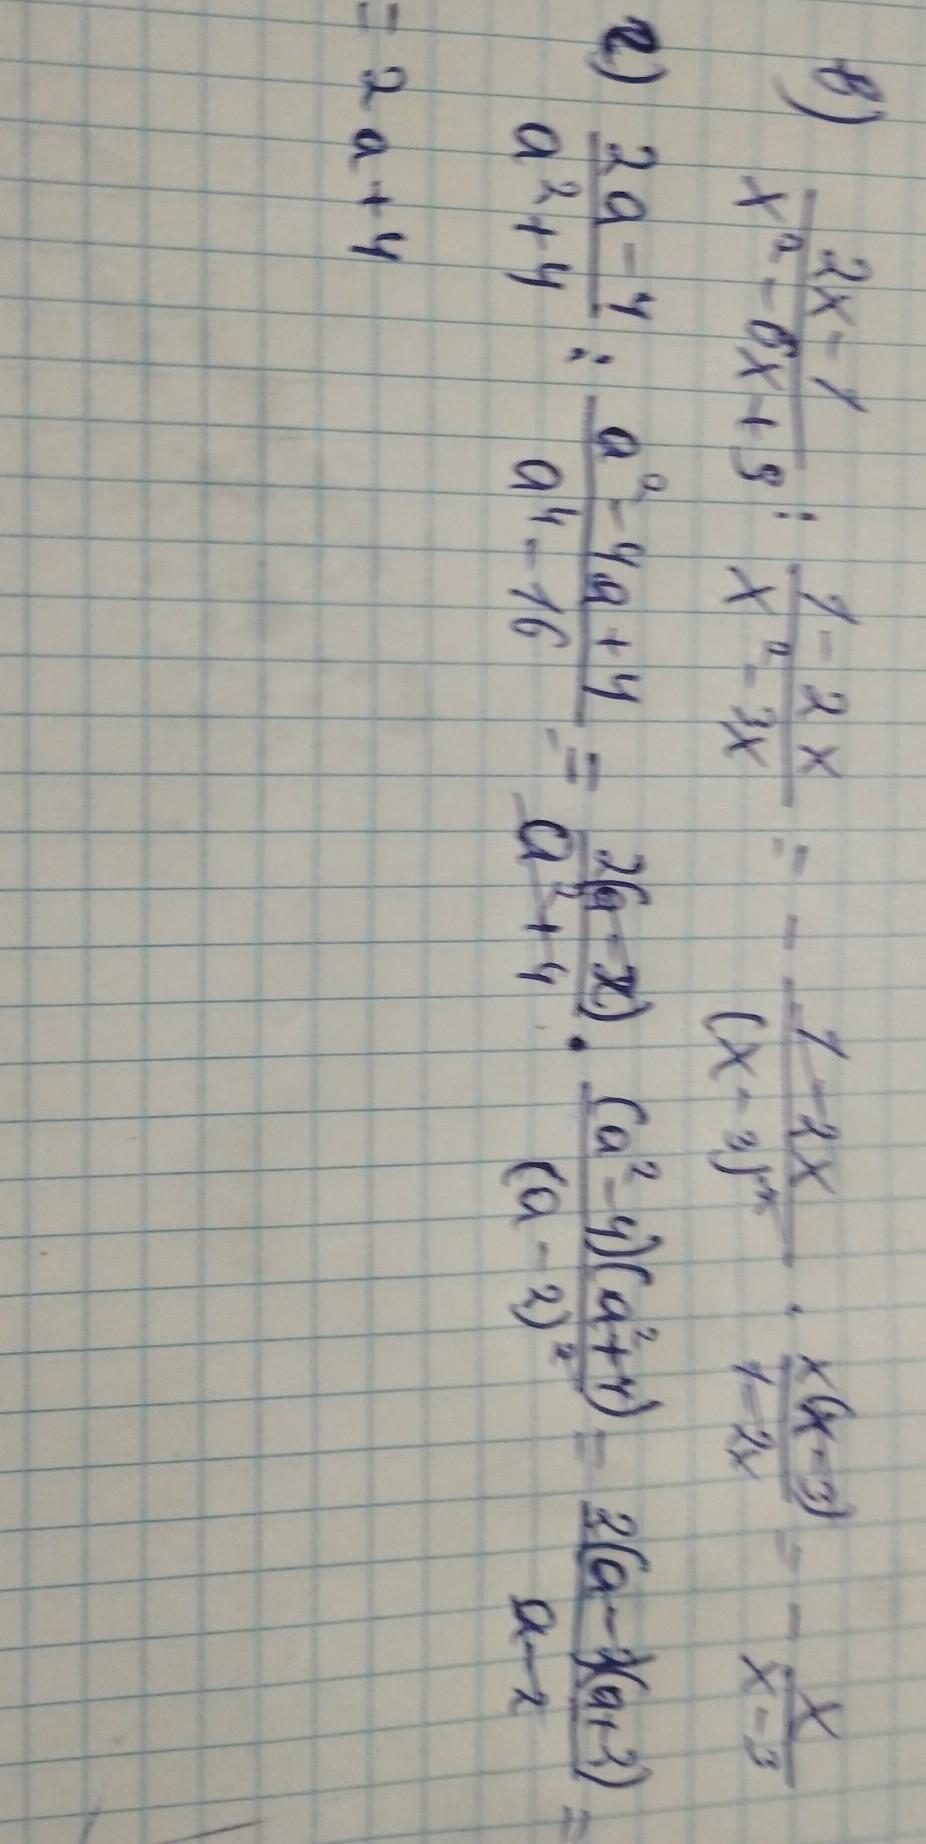 в) \frac{2x-1}{x^2-6x+9} : \frac{1-2x}{x^2-3x} = - \frac{1-2x}{(x-3)^2} · \frac{x(x-3)}{1-2x} = - \frac{x}{x-3}
г) \frac{2a-4}{a^2+4} : \frac{a^2-4a+4}{a^4-16} = \frac{2(a-2)}{a^2+4} · \frac{(a^2-4)(a^2+4)}{(a-2)^2} = \frac{2(a-2)(a+2)}{a-2} =
= 2a+4